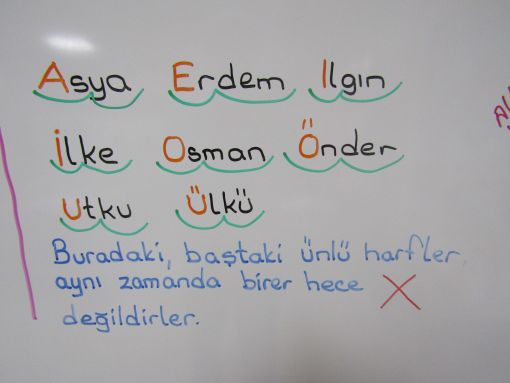 Asya Erdem Ilgın
İlke Osman Önder
Utku Ülkü
Buradaki, baştaki ünlü harfler,
aynı zamanda birer hece
değildirler.